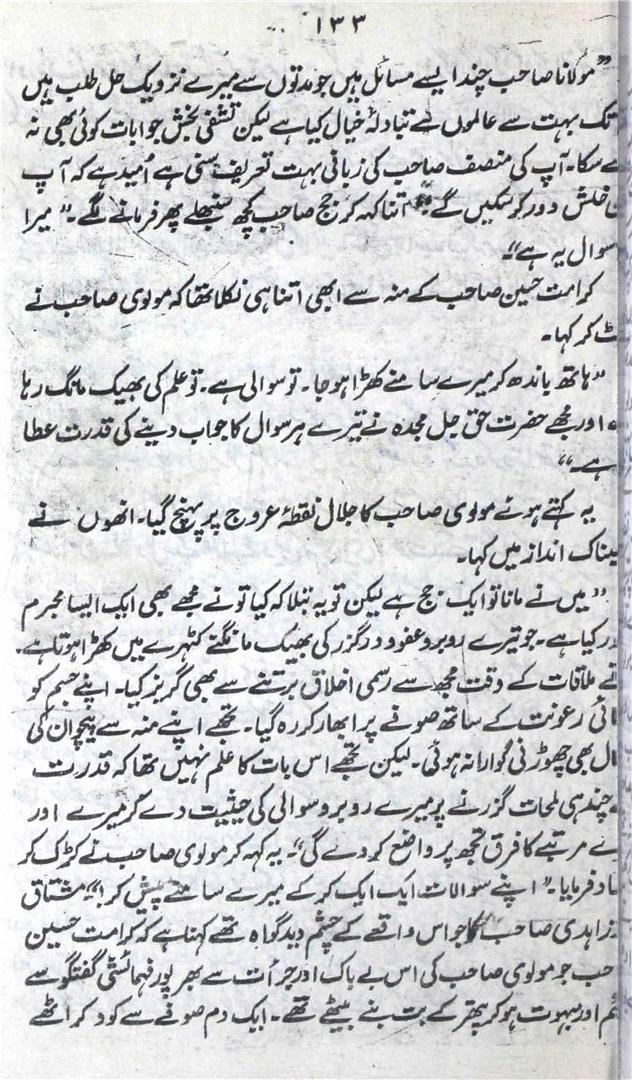 ۱۳۳
"مولانا صاحب چند ایسے مسائل ہیں جو مدتوں سے میرے نزدیک حل طلب ہیں
تک بہت سے عالموں سے تبادلۂ خیال کیا ہے لیکن تشفی بخش جوابات کوئی بھی نہ
ے سکا۔ آپ کی منصف صاحب کی زبانی بہت تعریف سنی ہے اُمید ہے کہ آپ
ی خلش دور کر سکیں گے" اتنا کہہ کر جج صاحب کچھ سنبھلے پھر فرمانے لگے۔ "میرا
سوال یہ ہے"
کرامت حسین صاحب کے منہ سے ابھی اتنا ہی نکلا تھا کہ مولوی صاحب نے
ٹ کر کہا۔
"ہاتھ باندھ کر میرے سامنے کھڑا ہو جا۔ تو سوالی ہے۔ تو علم کی بھیک مانگ رہا
ہے اور مجھے حضرت حق جل مجدہ نے تیرے ہر سوال کا جواب دینے کی قدرت عطا
ہے۔"
یہ کہتے ہوئے مولوی صاحب کا جلال نقطۂ عروج پر پہنچ گیا۔ انھوں نے
یبناک انداز میں کہا۔
"میں نے مانا تو ایک جج ہے لیکن تو یہ بتلا کہ کیا تو نے مجھے بھی ایک ایسا مجرم
ور کیا ہے۔ جو تیرے روبرو عفو و درگزر کی بھیک مانگنے کٹہرے میں کھڑا ہوتا ہے۔
نے ملاقات کے وقت مجھ سے رسمی اخلاق برتنے سے بھی گریز کیا۔ اپنے جسم کو
ائی رعونت کے ساتھ صوفے پر ابھار کر رہ گیا۔ تجھے اپنے منہ سے پیچوان کی
ال بھی چھوڑنی گوارا نہ ہوئی۔ لیکن تجھے اس بات کا علم نہیں تھا کہ قدرت
چند ہی لمحات گزرنے پر میرے روبرو سوالی کی حیثیت دے کر میرے اور
ے مرتبے کا فرق تجھ پر واضع کر دے گی"۔ یہ کہہ کر مولوی صاحب نے کڑک کر
شاد فرمایا۔ "اپنے سوالات ایک ایک کر کے میرے سامنے پیش کر!" مشتاق
زاہدی صاحب کا جو اس واقعے کے چشم دید گواہ تھے کہنا ہے کہ کرامت حسین
احب جو مولوی صاحب کی اس بے باک اور جرأت سے بھرپور فہمائشی گفتگو سے
م اور مبہوت ہو کر پتھر کے بت بنے بیٹھے تھے۔ ایک دم صوفے سے کود کر اٹھے